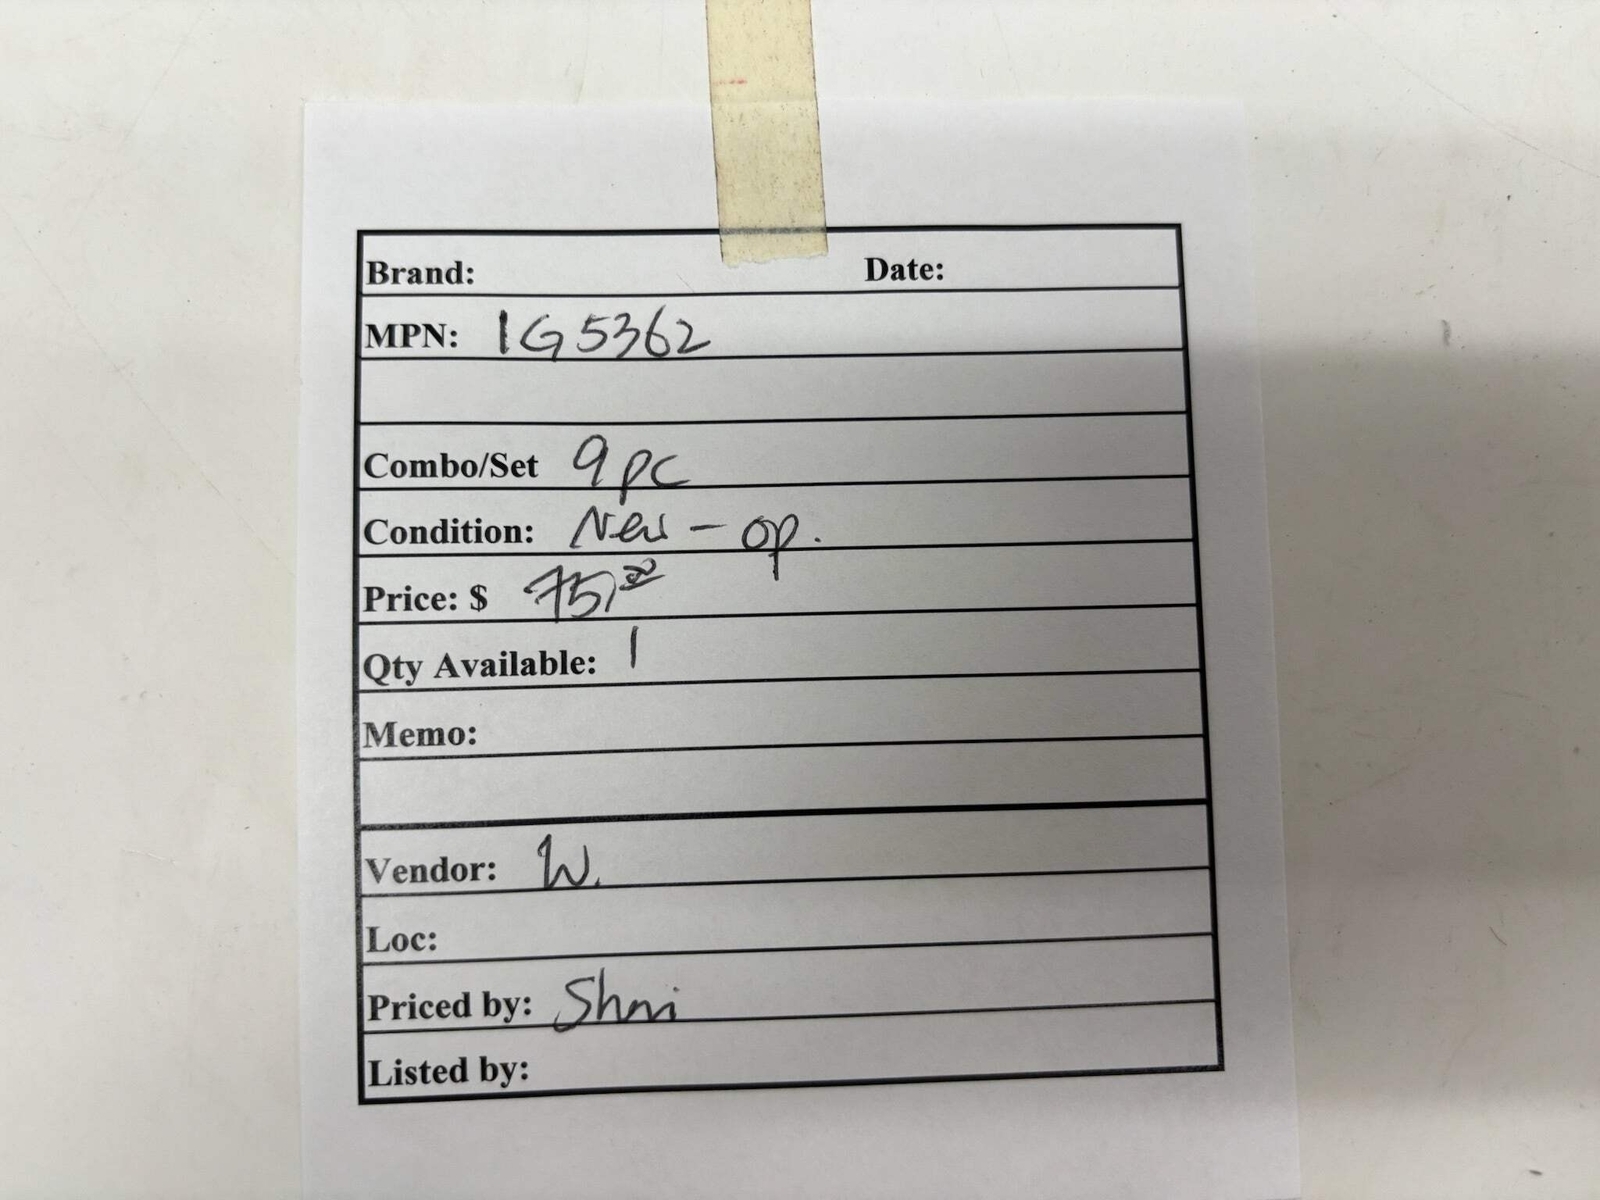 Brand: Date:
MPN: 1G5362
Combo/Set 9pc
Condition: New - op.
Price: $ 75.00
Qty Available: 1
Memo:
Vendor: W.
Loc:
Priced by:
Listed by: